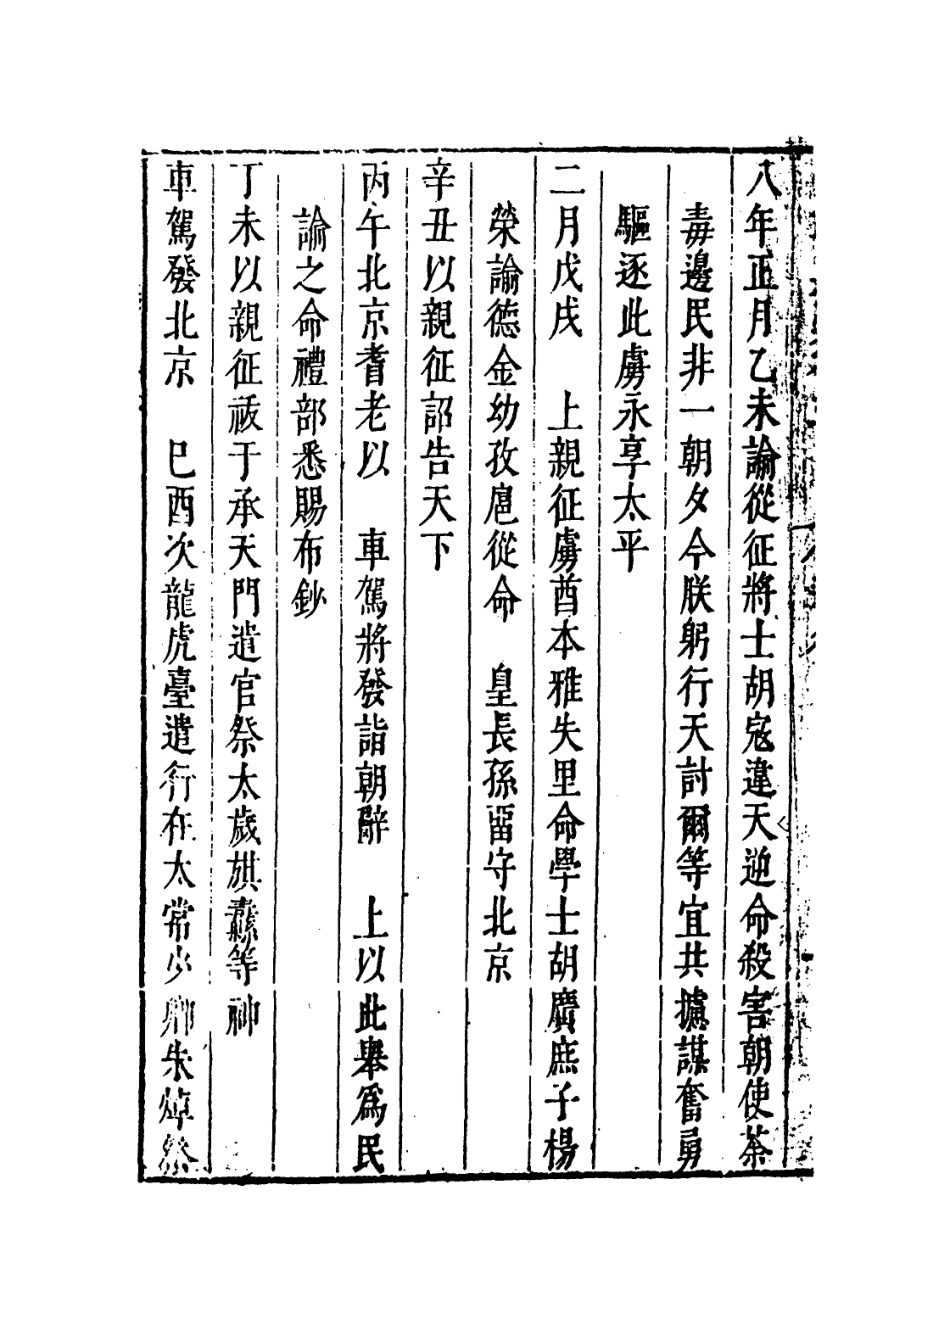 八年正月乙未論從征將士胡寇違天逆命殺害朝使荼
毒邊民非一朝夕今朕躬行天討爾等宜共攄謀奮勇
驅逐此虜永享太平
二月戊戌　上親征虜酋本雅失里命學士胡廣庶子楊
榮諭德金幼孜扈從命　皇長孫畱守北京
辛丑以親征詔告天下
丙午北京耆老以　車駕將發詣朝辭　上以此舉爲民
諭之命禮部悉賜布鈔
丁未以親征祓于承天門遣官祭太歲旗纛等神
車駕發北京　巳酉次龍虎臺遣行在太常少卿朱焯祭